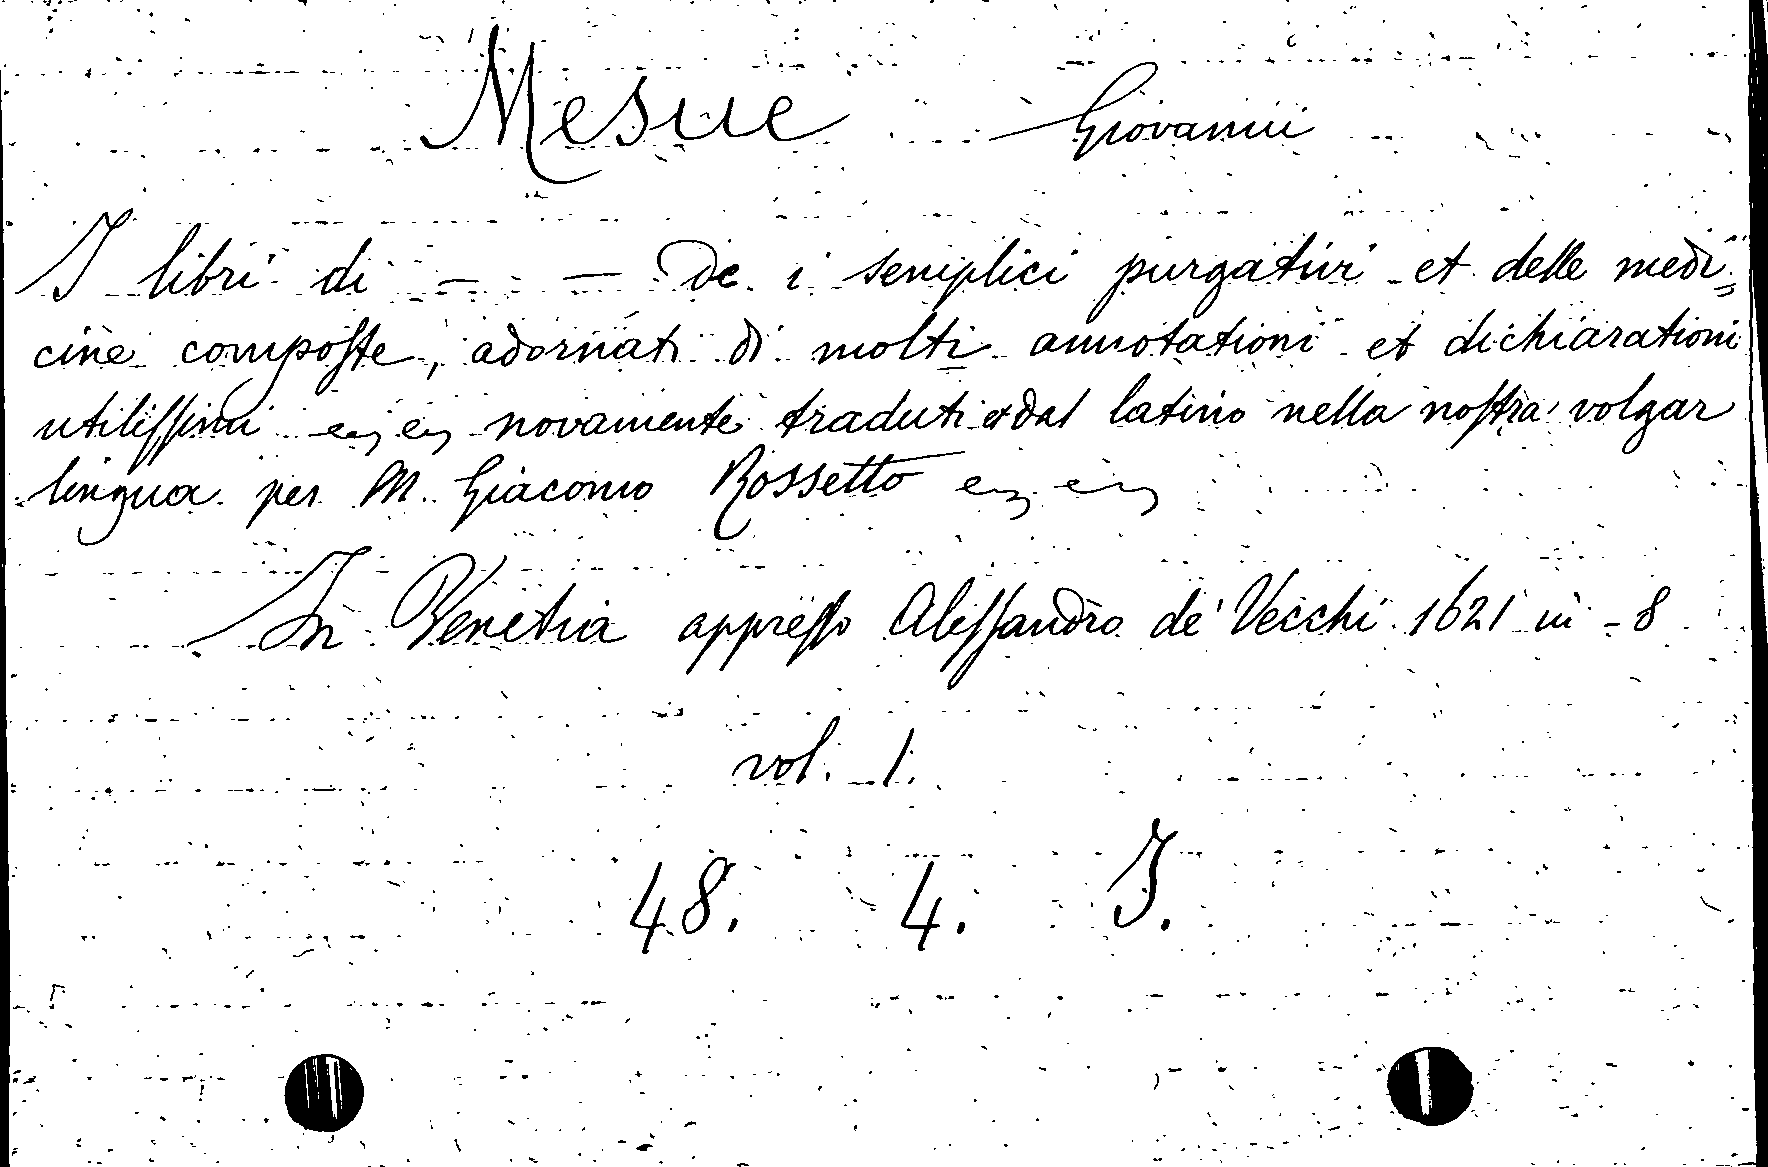 Mesue Giovanni
I libri di — — De i semplici purgativi et delle medi=
cine composte, adornati di molti annotationi et dichiarationi
utilissimi novamente tradutti dal latino nella nostra volgar
lingua per M. Giacomo Rossetto
In Venetia appresso Alessandro de' Vecchi 1621 in - 8
vol. 1.
48. 4. I.